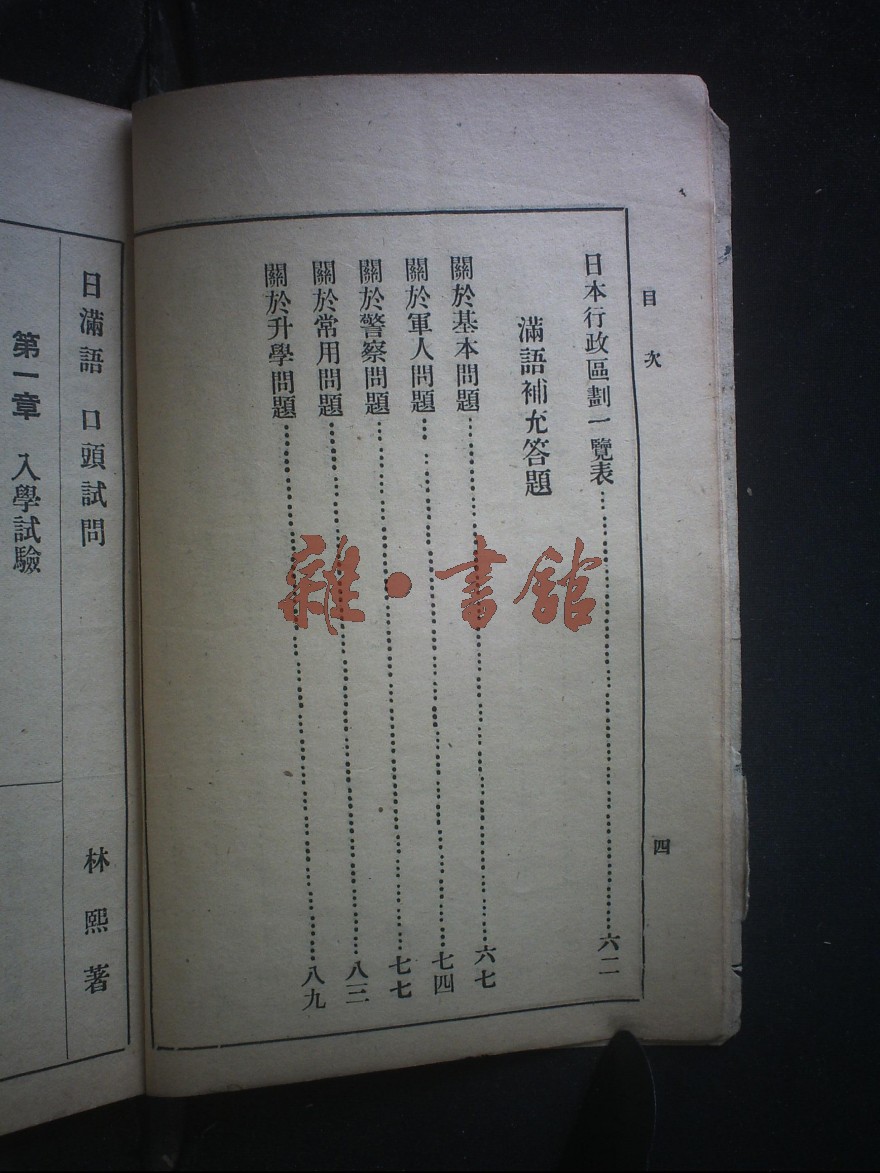 目次
四
日本行政區劃一覽表……六二
滿語補充答題
關於基本問題……六七
關於軍人問題……七四
關於警察問題……七七
關於常用問題……八三
關於升學問題……八九
日滿語 口頭試問
林熙著
第一章 入學試驗
雜·書館